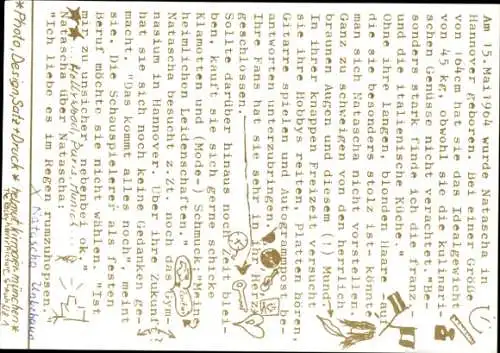 Am 15.Mai 1964 wurde Natascha in
Hannover geboren. Bei einer Größe
von 164cm hat sie das Idealgewicht
von 45 kg, obwohl sie die kulinari-
schen Genüsse nicht verachtet."Be-
sonders stark finde ich die franz.
und die italienische Küche."
Ohne ihre langen, blonden Haare auf
die sie besonders stolz ist- könnte
man sich Natascha nicht vorstellen.
Ganz zu schweigen von den herrlich
braunen Augen und diesem (!) Mund-
In ihrer knappen Freizeit versucht
sie ihre Hobbys reiten, Platten hören,
Gitarre spielen und Autogrammpost be-
antworten unterzubringen.
Ihre Fans hat sie sehr in ihr Herz
geschlossen.
Sollte darüber hinaus noch Zeit blei-
ben, kauft sie sich gerne schicke
Klamotten und Mode-) Schmuck."Meine
heimlichen Leidenschaften."
Natascha besucht z.Zt noch das Gym-
nasium in Hannover. Über ihre Zukunft
hat sie sich noch keine Gedanken ge-
macht. "Das kommt alles noch", meint
sie. Die Schauspielerei als festen
Beruf möchte sie nicht wählen. "Ist
mir zu unsicher, nebenbei ok."
Hollywood, Paris, Munic...
Natascha über Natascha:
"Ich liebe es im Regen rumzuhopsen."
x Natascha
*Photo, Design, Satz+Druck* helmut kirrmann münchen*